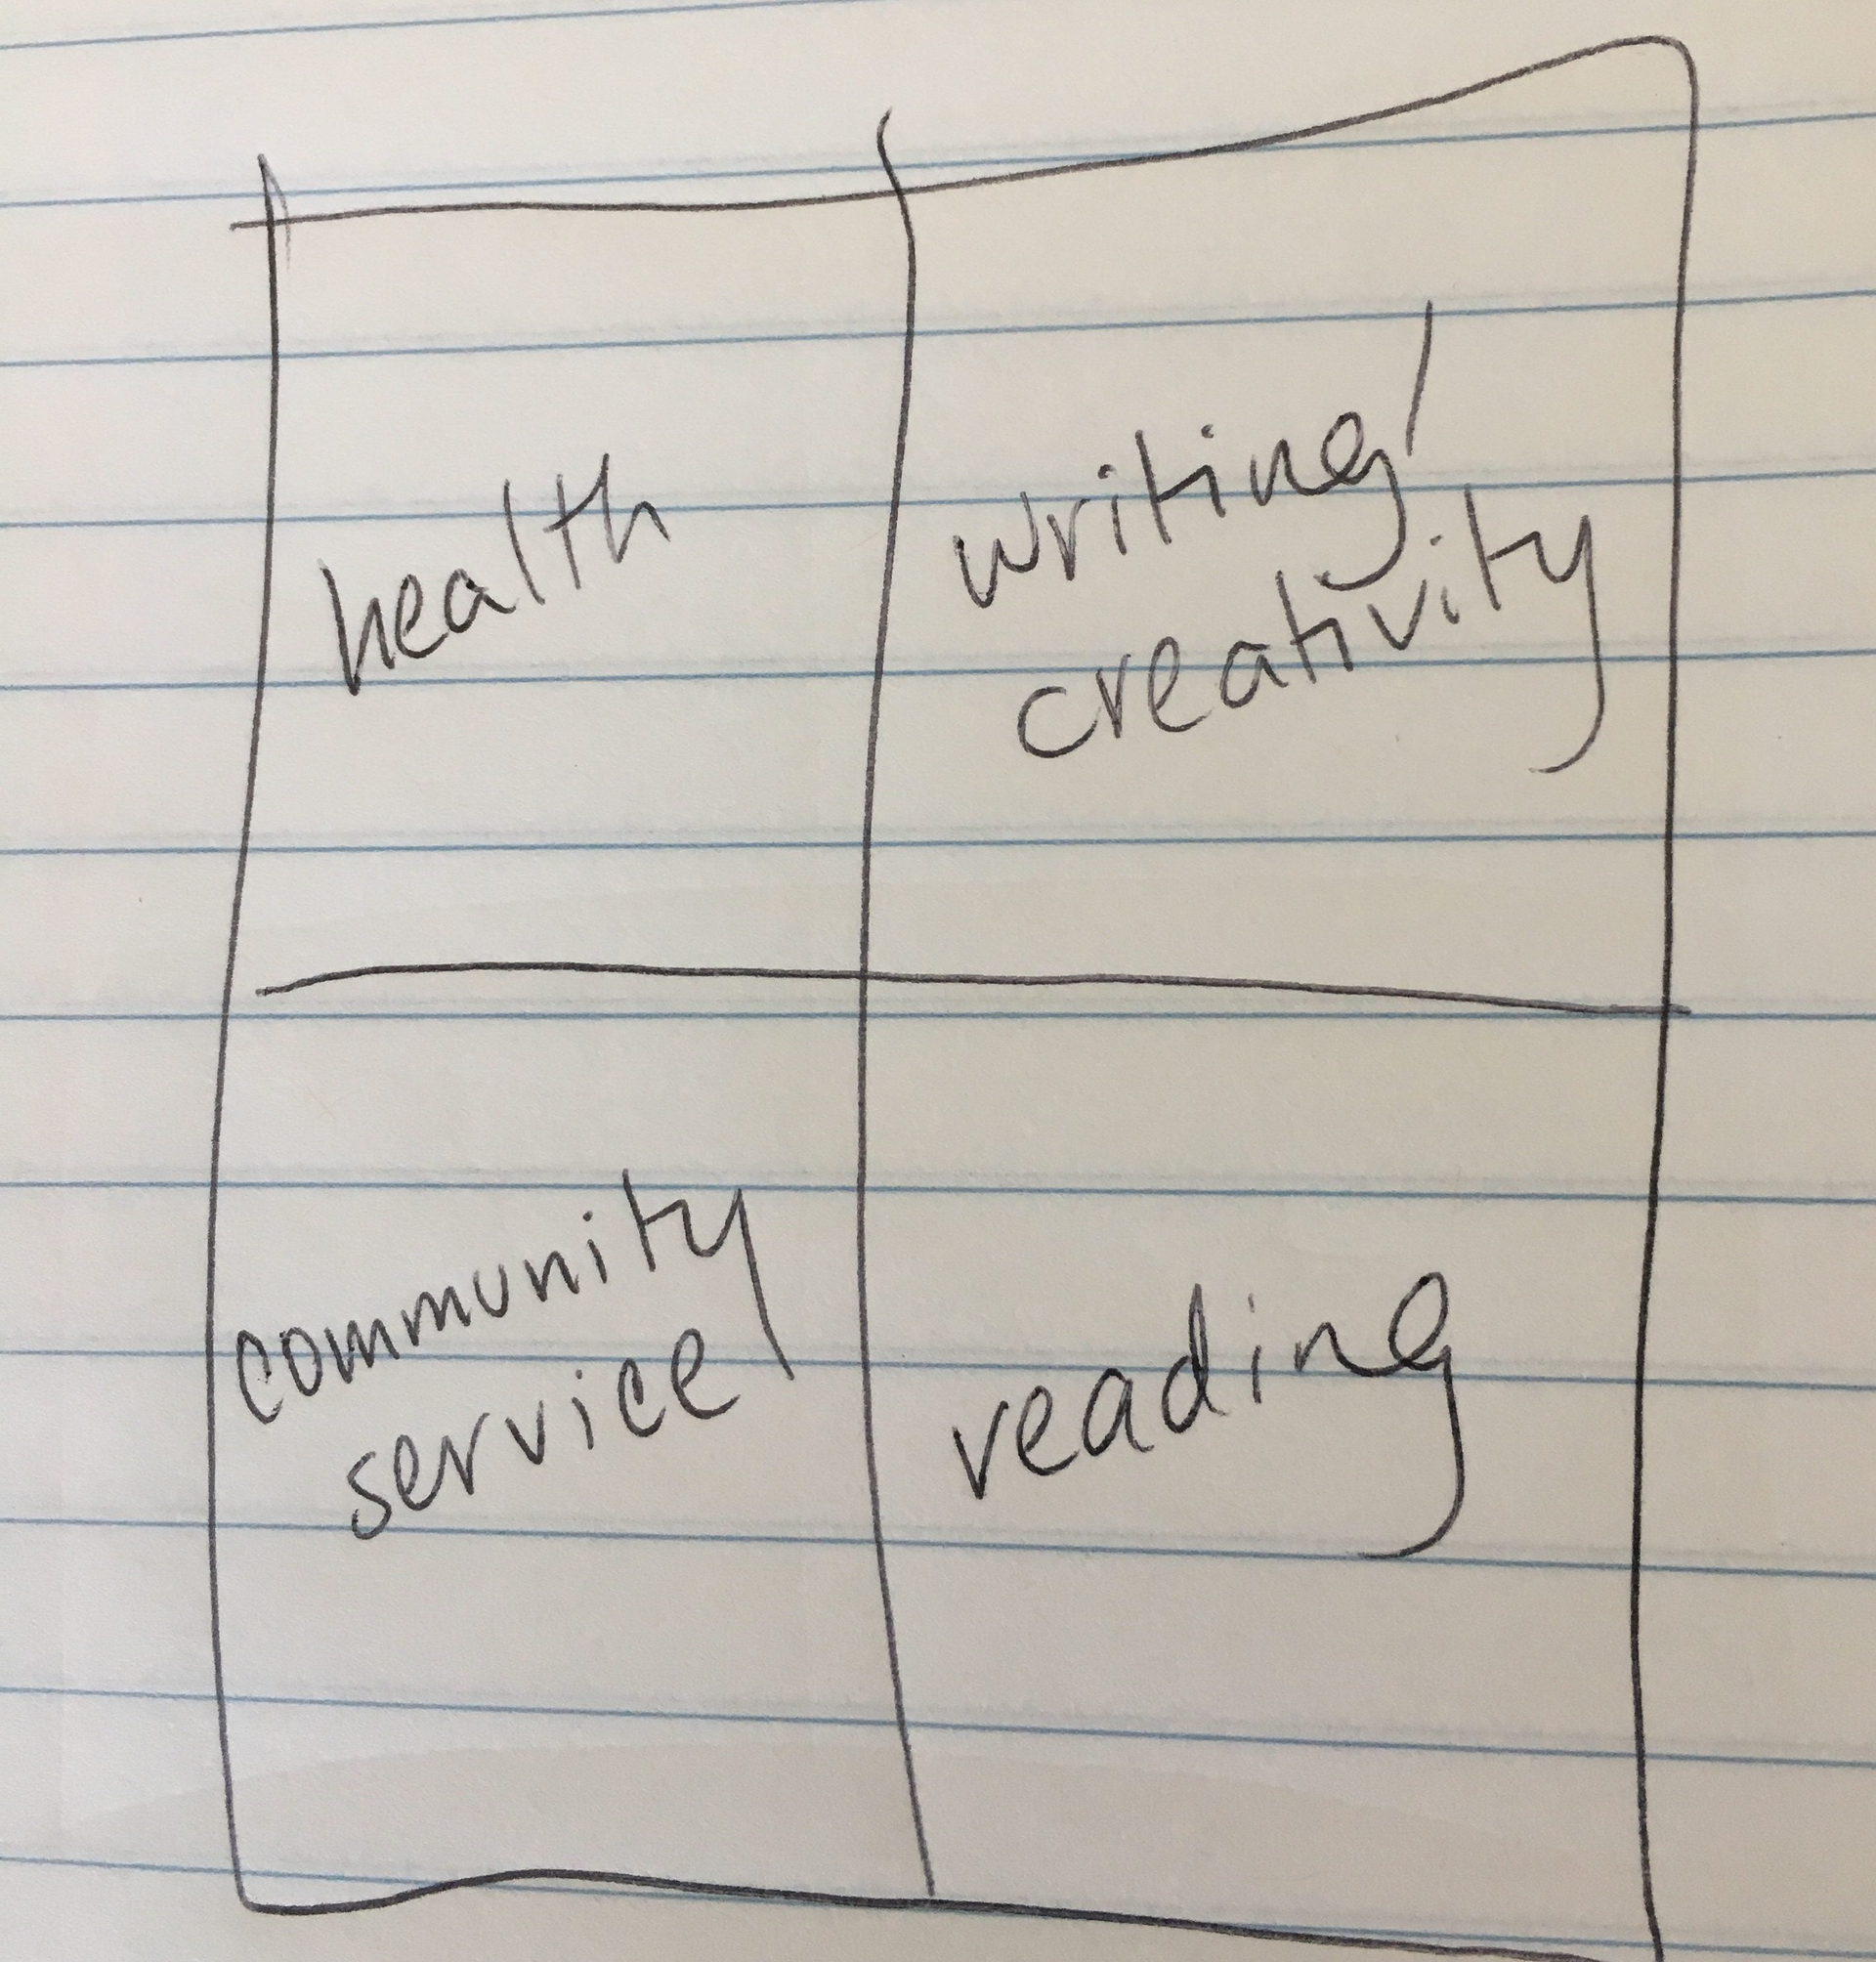 health
writing/
creativity
community
service
reading